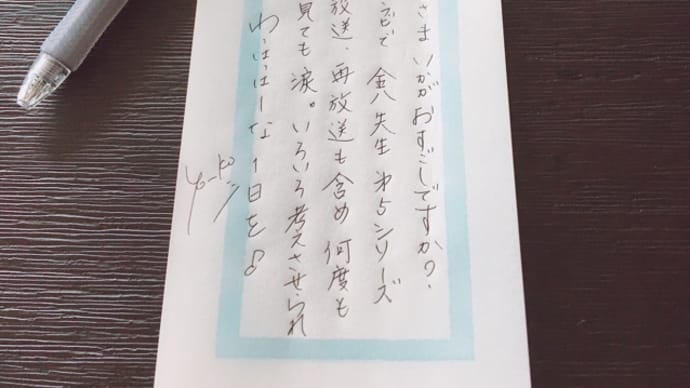 さま いかがおすごしですか?
ビで 金八先生 第5シリーズ
放送、再放送も含め 何度も
見ても 涙。いろいろ考えさせられ
わっはっはーな 1日を♪
yo-ko